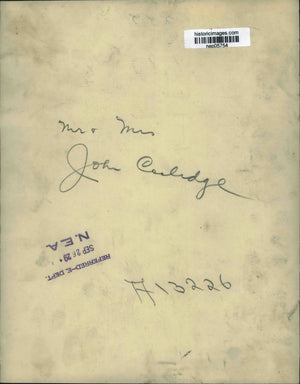 historicimages.com
neo05754
Mr + Mrs
John Coolidge
REFERRED-E. DEPT.
SEP 26 29
NEA
A13226